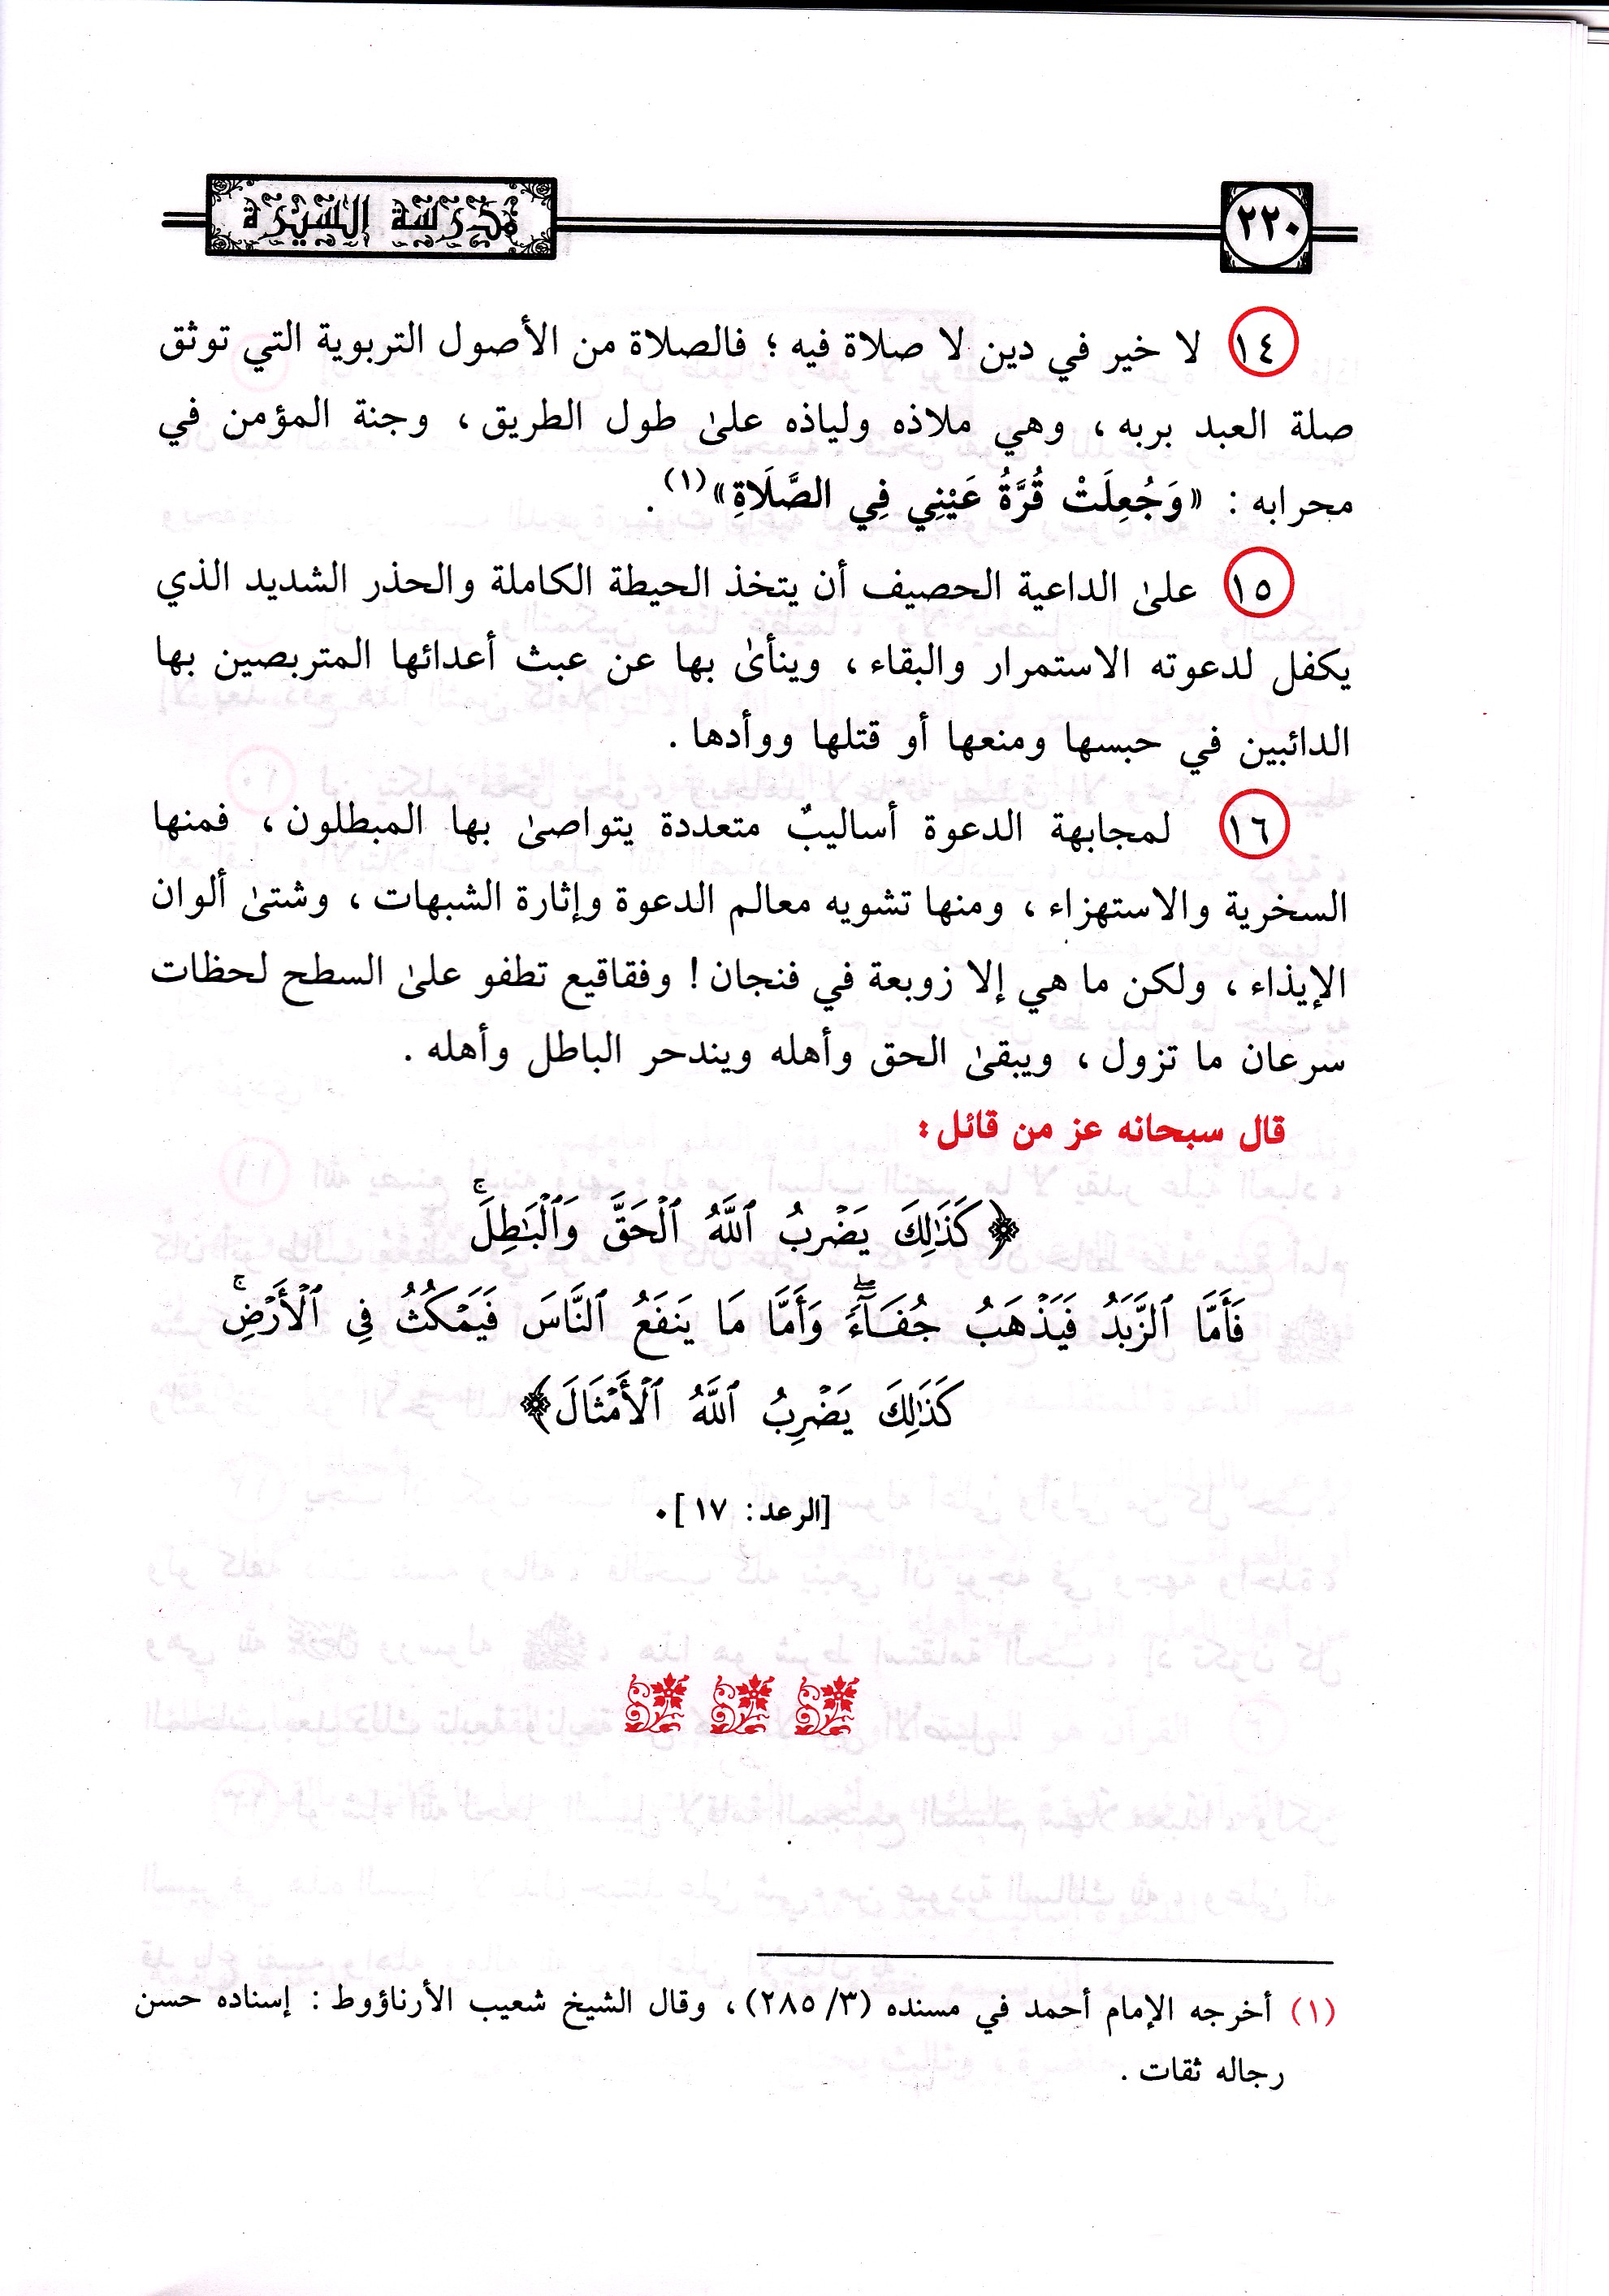 ٢٢٠
مدرسة السيرة
١٤ لا خير في دين لا صلاة فيه ؛ فالصلاة من الأصول التربوية التي توثق
صلة العبد بربه ، وهي ملاذه ولياذه علىٰ طول الطريق ، وجنة المؤمن في
محرابه : «وَجُعِلَتْ قُرَّةُ عَيْنِي فِي الصَّلَاةِ»(١) .
١٥ علىٰ الداعية الحصيف أن يتخذ الحيطة الكاملة والحذر الشديد الذي
يكفل لدعوته الاستمرار والبقاء ، وينأىٰ بها عن عبث أعدائها المتربصين بها
الدائبين في حبسها ومنعها أو قتلها ووأدها .
١٦ لمجابهة الدعوة أساليبٌ متعددة يتواصىٰ بها المبطلون ، فمنها
السخرية والاستهزاء ، ومنها تشويه معالم الدعوة وإثارة الشبهات ، وشتىٰ ألوان
الإيذاء ، ولكن ما هي إلا زوبعة في فنجان ! وفقاقيع تطفو علىٰ السطح لحظات
سرعان ما تزول ، ويبقىٰ الحق وأهله ويندحر الباطل وأهله .
قال سبحانه عز من قائل :
﴿كَذَٰلِكَ يَضْرِبُ ٱللَّهُ ٱلْحَقَّ وَٱلْبَٰطِلَ ۚ
فَأَمَّا ٱلزَّبَدُ فَيَذْهَبُ جُفَآءً ۖ وَأَمَّا مَا يَنفَعُ ٱلنَّاسَ فَيَمْكُثُ فِى ٱلْأَرْضِ ۚ
كَذَٰلِكَ يَضْرِبُ ٱللَّهُ ٱلْأَمْثَالَ﴾
[الرعد: ١٧ ].
(١) أخرجه الإمام أحمد في مسنده (٣/ ٢٨٥) ، وقال الشيخ شعيب الأرناؤوط : إسناده حسن
رجاله ثقات .